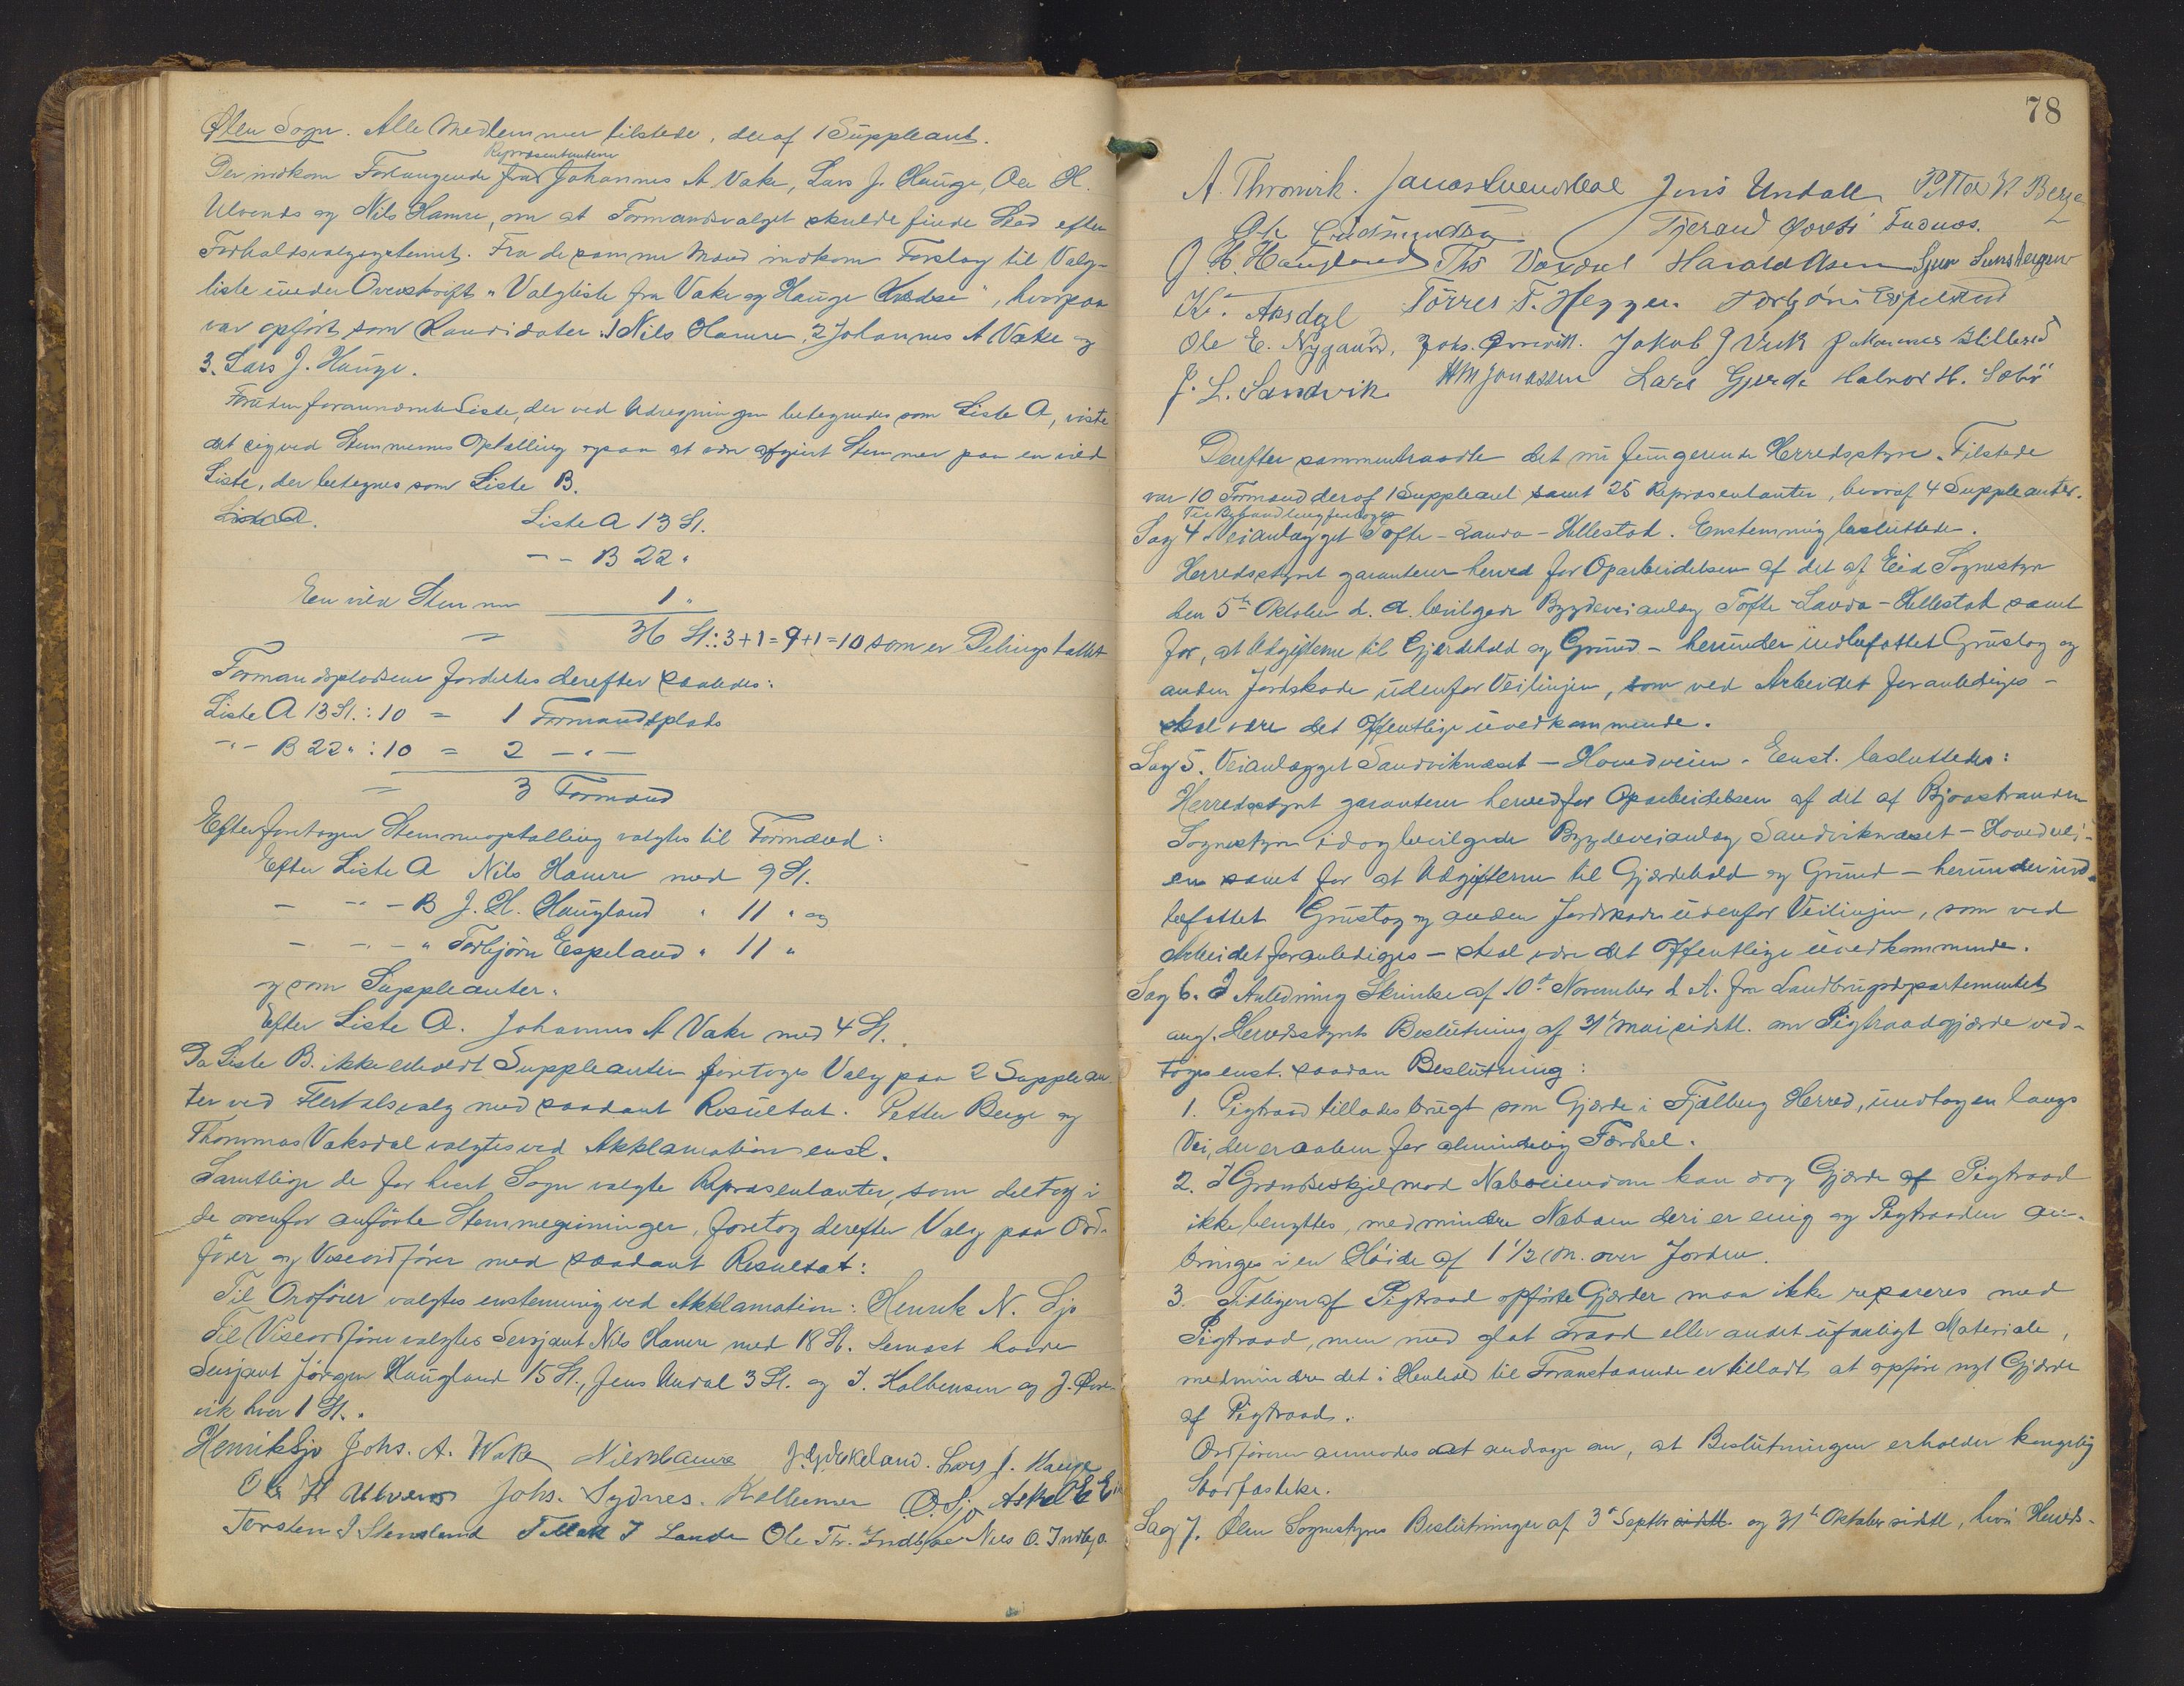 Ølen Sogn. Alle Medlemmer tilstede, deraf 1 Suppleant.
Repræsentanterne
Der indkom Forlangende fra Johannes A Vake, Lars J. Hauge, Ole H.
Ulvenes og Nils Hamre, om at Formandsvalget skulde finde Sted efter
Forholdsvalgsystemet. Fra de samme Mænd indkom Forslag til Valg-
liste under Overskrift "Valgliste fra Vake og Hauge Kredse", hvorpaa
var opført som Kandidater: 1 Nils Hamre, 2 Johannes A Vake og
3. Lars J. Hauge.
Foruden forannævnte Liste, der ved Udregningen betegnedes som Liste A, viste
det sig ved Stemmernes Optælling ogsaa at være afgivt Stemmer paa en vild
Liste, der betegnes som Liste B.
Liste A. Liste A 13 St.
- - B 22 "
En vild Stemme 1 "
= 36 St.: 3+1=9+1=10 som er Delingstallet
Formandspladsene fordeltes derefter saaledes:
Liste A 13 St.: 10 = 1 Formandsplads
-"- B 22 " : 10 = 2 -"-
= 3 Formænd
Efter foretagen Stemmeoptælling valgtes til Formænd:
Efter Liste A Nils Hamre med 9 St.
- -"- B J. H. Haugland " 11 " og
- -"- " Torbjörn Espeland " 11 "
og som Suppleanter.
Efter Liste A. Johannes A Vake med 4 St.
Da Liste B. ikke indeholdt Suppleanter foretoges Valg paa 2 Supplean-
ter ved Flertalsvalg med saadant Resultat. Petter Berge og
Thommas Vaksdal valgtes ved Akklamation enst.
Samtlige de for hvert Sogn valgte Repræsentanter, som deltog i
de ovenfor anførte Stemmegivninger, foretog derefter Valg paa Ord-
fører og Viseordfører med saadant Resultat:
Til Ordfører valgtes enstemmig ved Akklamation: Henrik N. Sjo
Til Viseordfører valgtes Sersjant Nils Hamre med 18 St. Dernæst havde
Sersjant Jörgen Haugland 15 St., Jens Undal 3 St. og I. Kolbensen og J.
vik hver 1 St.
Henrik Sjo Johs. A. Wake Nils Hamre J. G. Ekeland. Lars J. Hauge
Ole H Ulvenes Johs. Sydnes. O. Sjo
Torsten I Stensland Tollak I Landa Ole Th. Indbjoe Nils O. Indbjo
78
A. Thronvik. Jonas Svendsbøe Jens Undall Petter H Berge
Ole Gudmundsen Tjerand
J. H. Haugland Ths Vaxdal Harald Aasen
K. Aksdal Törres T. Heggen. Torbjörn Espeland
Ole E. Nygaard, Johs. Jakob J Vik
J. L. Sandvik HM Jonassen Lars Gjerde Halvor H. Sæbö
Derefter sammentraadte det nu fungerende Herredsstyre. Tilstede
var 10 Formænd deraf 1 Suppleant samt 25 Repræsentanter, hvoraf 4 Suppleanter.
Til Behandling foretoges
Sag 4. Veianlægget Tofte-Landa-Hellestøl. Enstemmig besluttedes.
Herredsstyret garanterer herved for Oparbeidelsen af det af Eid Sognestyre
den 5te Oktober d. A. bevilgede Bygdeveianlæg Tofte-Landa-Hellestøl samt
for, at Udgifterne til Gjærdehold og Grund - herunder indbefattet Grustag og
anden Jordskade udenfor Veilinjen, som ved Arbeidet foranlediges -
skal være det Offentlige uvedkommende.
Sag 5. Veianlægget Sandviknæset - Hovedveien. Enst. besluttedes:
Herredsstyret garanterer herved for Oparbeidelsen af det af Bjoastranden
Sognestyre idag bevilgede Bygdeveianlæg Sandviknæset - Hovedvei-
en samt for at Udgifterne til Gjærdehold og Grund - herunder ind-
befattet Grustag og anden Jordskade udenfor Veilinjen, som ved
Arbeidet foranlediges - skal være det Offentlige uvedkommende.
Sag 6. I Anledning Skrivelse af 10de November d. A. fra Landbrugsdepartementet
ang. Herredsstyrets Beslutning af 31te Mai sidstl. om Pigtraadgjærde ved-
toges enst. saadan Beslutning:
1. Pigtraad tillades brugt som Gjærde i Fjelberg Herred, undtagen langs
Vei, der er aaben for almindelig Færdsel.
2. I Grændseskjel mod Naboeiendom kan dog Gjærde af Pigtraad
ikke benyttes, medmindre Naboen deri er enig og Pigtraaden an-
bringes i en Høide af 1 1/2 m. over Jorden.
3. Tidligere af Pigtraad opførte Gjærder maa ikke repareres med
Pigtraad, men med glat Traad eller andet ufarligt Materiale,
medmindre det i Henhold til Foranstaaende er tilladt at opføre nyt Gjærde
af Pigtraad.
Ordføreren anmodes at andrage om, at Beslutningen erholder kongelig
Stadfæstelse.
Sag 7. Ølen Sognestyres Beslutninger af 3de Septbr sidstl. og 31te Oktober sidstl, hvori Herreds-